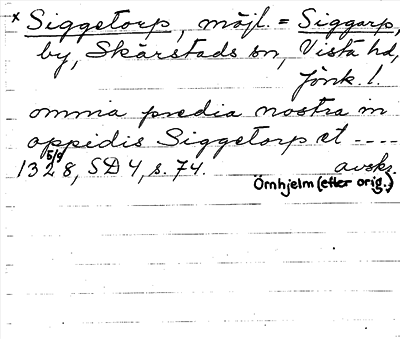 x Siggetorp, möjl. = Siggarp,
by, Skärstads sn, Vista hd,
Jönk. l.
omnia predia nostra in
oppidis Siggetorp et ----
5/9
1328, SD 4, s. 74. avskr.
Örnhjelm (efter orig.)